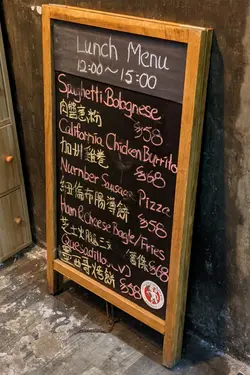 Lunch Menu
12:00~15:00
Spaghetti Bolognese
肉醬意粉 $58
California Chicken Burrito
加州雞卷 $58
Nurnber Sausage Pizza
紐倫布腸薄餅 $58
Ham & Cheese Bagle/Fries
芝士火腿 薯條 $68
Quesadilla
墨西哥烤餅 $58